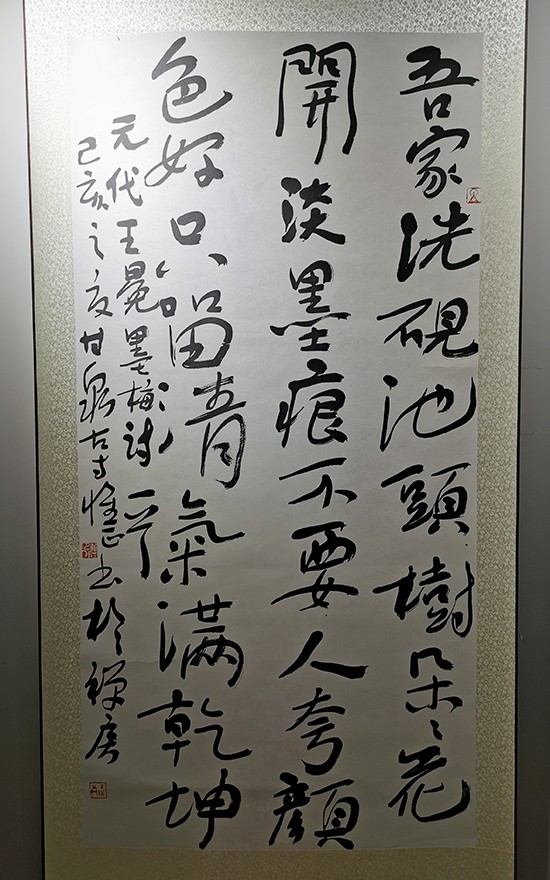 吾家洗硯池頭樹朵々花
開淡墨痕不要人夸顏
色好只留青氣滿乾坤
元代王冕墨梅詩一首
己亥之夏甘泉古寺惟正书於禪房